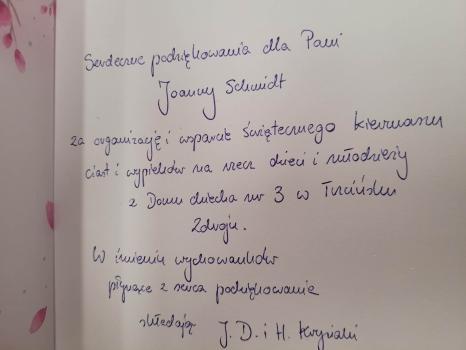 Serdeczne podziękowania dla Pani
Joanny Schmidt
za organizację i wsparcie świątecznego kiermaszu
ciast i wypieków na rzecz dzieci i młodzieży
z Domu dziecka nr 3 w
Zdroju.
W imieniu wychowanków
płynące z serca podziękowanie
składają J. D. i H.